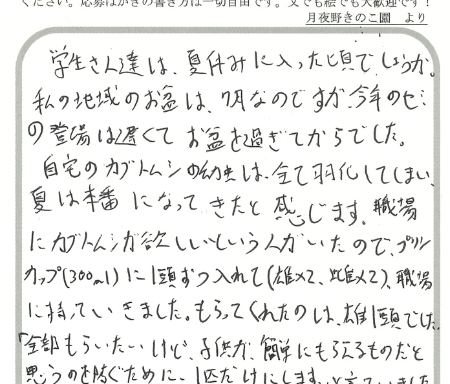 ください。応募はがきの書き方は一切自由です。文でも絵でも大歓迎です！
月夜野きのこ園　より
学生さん達は、夏休みに入った頃でしょうか。
私の地域のお盆は、7月なのですが、今年のセミ
の登場は遅くてお盆を過ぎてからでした。
自宅のカブトムシの幼虫は、全て羽化してしまい、
夏は本番になってきたと感じます。職場
にカブトムシが欲しいという人がいたので、プリン
カップ(300ml)に1頭ずつ入れて(雄×2、雌×2)、職場
に持っていきました。もらってくれたのは、雄1頭でした。
「全部もらいたいけど、子供が、簡単にもらえるものだと
思うのを防ぐために、1匹だけにします。」と言っていました